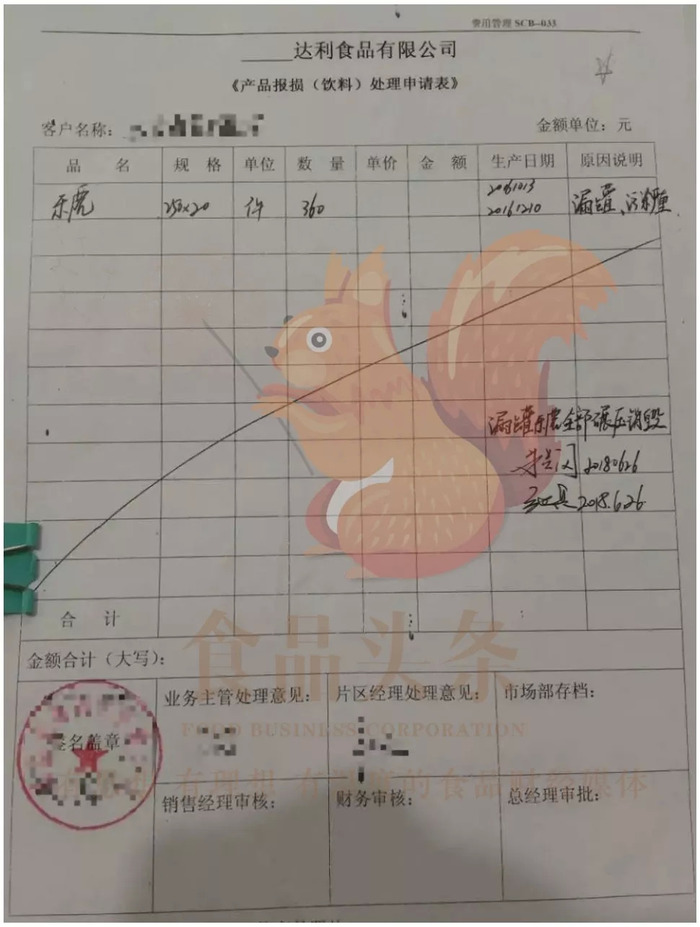 费用管理 SCB-033
达利食品有限公司
《产品报损(饮料)处理申请表》
客户名称: 金额单位:元
品 名 规 格 单位 数 量 单价 金 额 生产日期 原因说明
乐虎 250×20 件 360 20161013 20161210 漏罐、污染
漏罐乐虎全部碾压销毁
20180626
2018.6.26
合 计
金额合计(大写):
签名盖章
业务主管处理意见: 片区经理处理意见: 市场部存档:
销售经理审核: 财务审核: 总经理审批:
食品头条
FOOD BUSINESS CORPORATION
有理想 有 的食品财经媒体